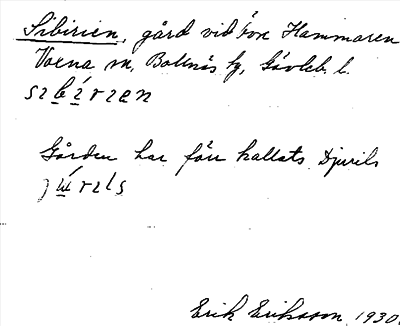 Sibirien, gård vid övre Hammaren
Voxna sn, Bollnäs tg, Gävleb. l.
sɪbírɪen
Gården har förr kallats Djurils
jú́rɪls
Erik Eriksson 1930.